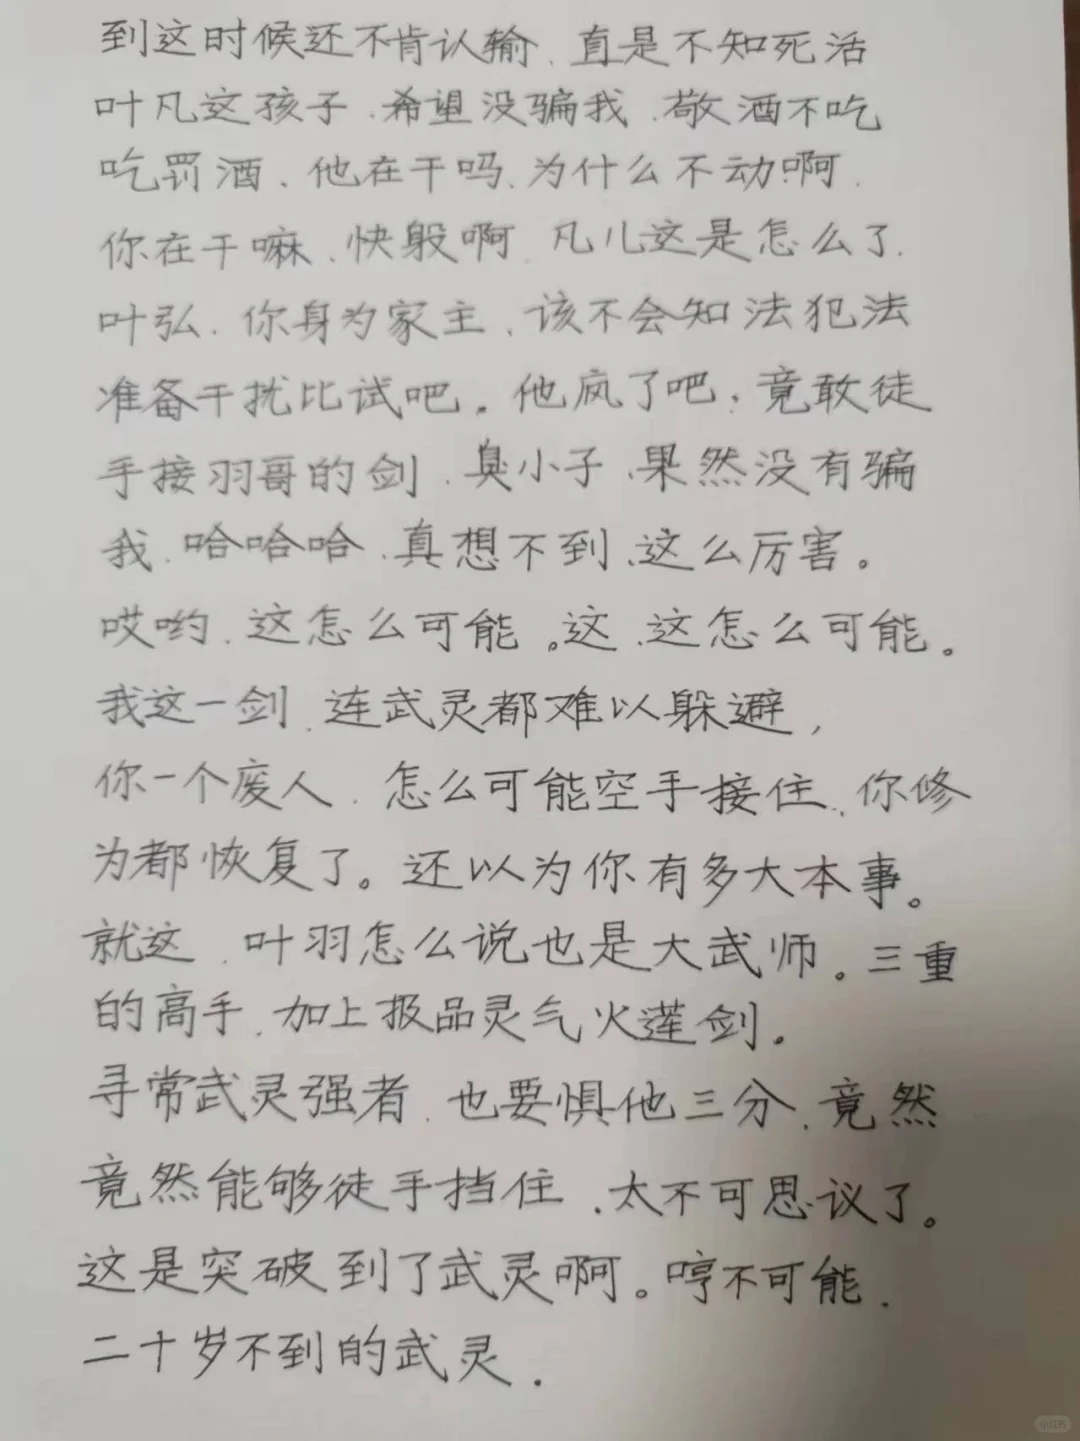 到这时候还不肯认输、直是不知死活
叶凡这孩子、希望没骗我、敬酒不吃
吃罚酒、他在干吗、为什么不动啊、
你在干嘛、快躲啊、凡儿这是怎么了.
叶弘、你身为家主、该不会知法犯法
准备干扰比试吧。他疯了吧、竟敢徒
手接羽哥的剑、臭小子、果然没有骗
我、哈哈哈、真想不到、这么厉害。
哎哟、这怎么可能。这、这怎么可能。
我这一剑、连武灵都难以躲避,
你一个废人、怎么可能空手接住、你修
为都恢复了。还以为你有多大本事。
就这、叶羽怎么说也是大武师。三重
的高手、加上报品灵气火莲剑。
寻常武灵强者、也要惧他三分、竟然
竟然能够徒手挡住、太不可思议了。
这是突破到了武灵啊。哼不可能、
二十岁不到的武灵.
小红书